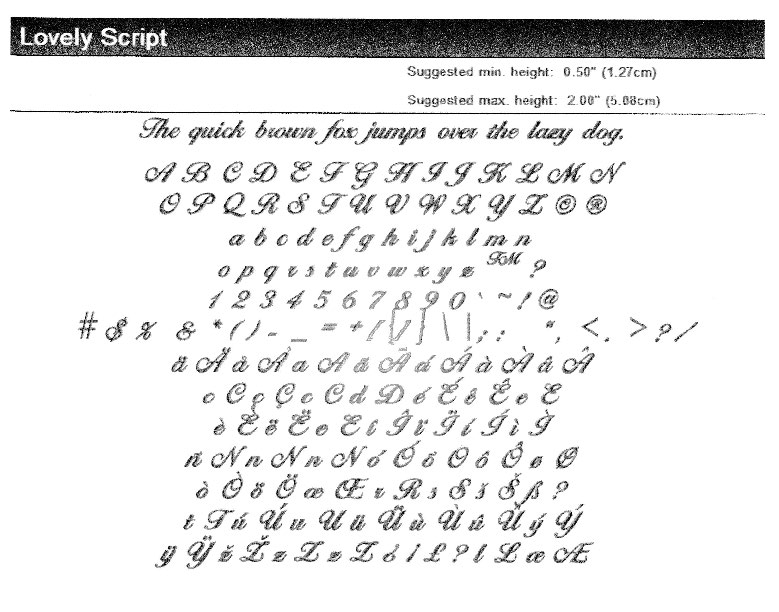 Lovely Script
Suggested min. height: 0.50" (1.27cm)
Suggested max. height: 2.00" (5.08cm)
The quick brown fox jumps over the lazy dog.
A B C D E F G H I J K L M N
O P Q R S T U V W X Y Z © ®
a b c d e f g h i j k l m n
o p q r s t u v w x y z TM ?
1 2 3 4 5 6 7 8 9 0 ` ~ ! @
# $ % & * ( ) - _ = + [ { / ] \ | ; : " , < . > ? /
ä Ä å Å a A ã Ã á Á à À â Â
c C ç Ç c C d D é É ê Ê e E
è È ë Ë e E î Î ï Ï í Í ì Ì
ñ N n N n N ó Ó õ O ô Ô ø Ø
ò Ò ö Ö œ Œ r R s S š Š ß ?
t T ú Ú u U ü Ü ù Ù û Û ý Ý
ÿ Ÿ ž Ž z Z z Z ¿ ¡ £ ? l L æ Æ